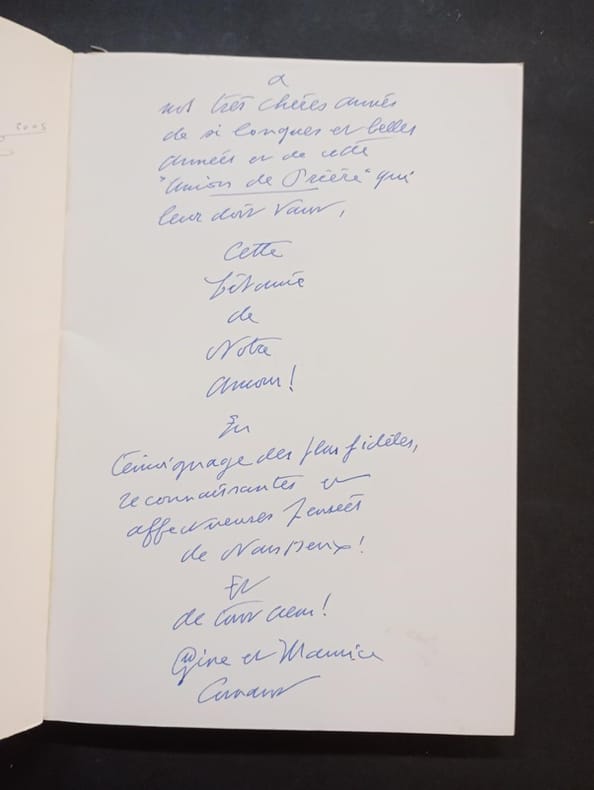 à
nos très chères amies
de si longues et belles
années et de cette
"Union de Prière" qui
leur doit tant,
Cette
Litanie
de
Notre
Amour!
En
témoignage des plus fidèles,
reconnaissantes et
affectueuses pensées
de Nous Deux!
Et
de tout cœur!
et Maurice